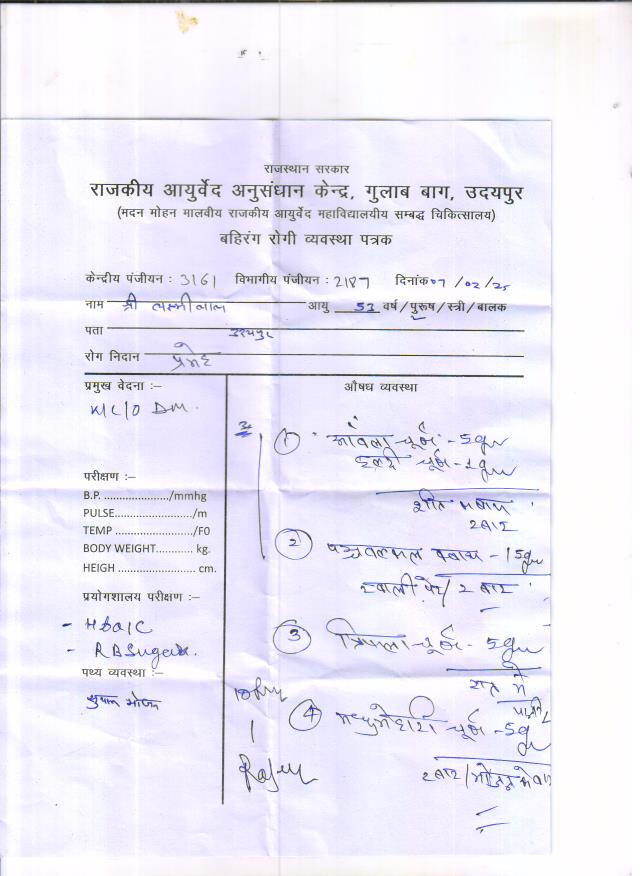 राजस्थान सरकार
राजकीय आयुर्वेद अनुसंधान केन्द्र, गुलाब बाग, उदयपुर
(मदन मोहन मालवीय राजकीय आयुर्वेद महाविद्यालयीय सम्बद्ध चिकित्सालय)
बहिरंग रोगी व्यवस्था पत्रक
केन्द्रीय पंजीयन : 3161 विभागीय पंजीयन : 2187 दिनांक 07/02/25
नाम श्री लक्ष्मीलाल आयु 53 वर्ष/पुरूष/स्त्री/बालक
पता उदयपुर
रोग निदान प्रमेह
प्रमुख वेदना :–
औषध व्यवस्था
K/C/O DM.
① आंवला चूर्ण - 5gm
हल्दी चूर्ण - 1gm
2 बार
② क्वाथ - 15gm
खाली पेट / 2 बार
③ त्रिफला चूर्ण - 5gm
रात्र में
④ चूर्ण - 5gm
2 बार/भोजन
परीक्षण :–
B.P. ...................../mmhg
PULSE......................./m
TEMP ......................./F0
BODY WEIGHT............ kg.
HEIGH ........................ cm.
प्रयोगशालय परीक्षण :–
- HbA1C
- RBSugar.
पथ्य व्यवस्था :–
सुपाच्य भोजन